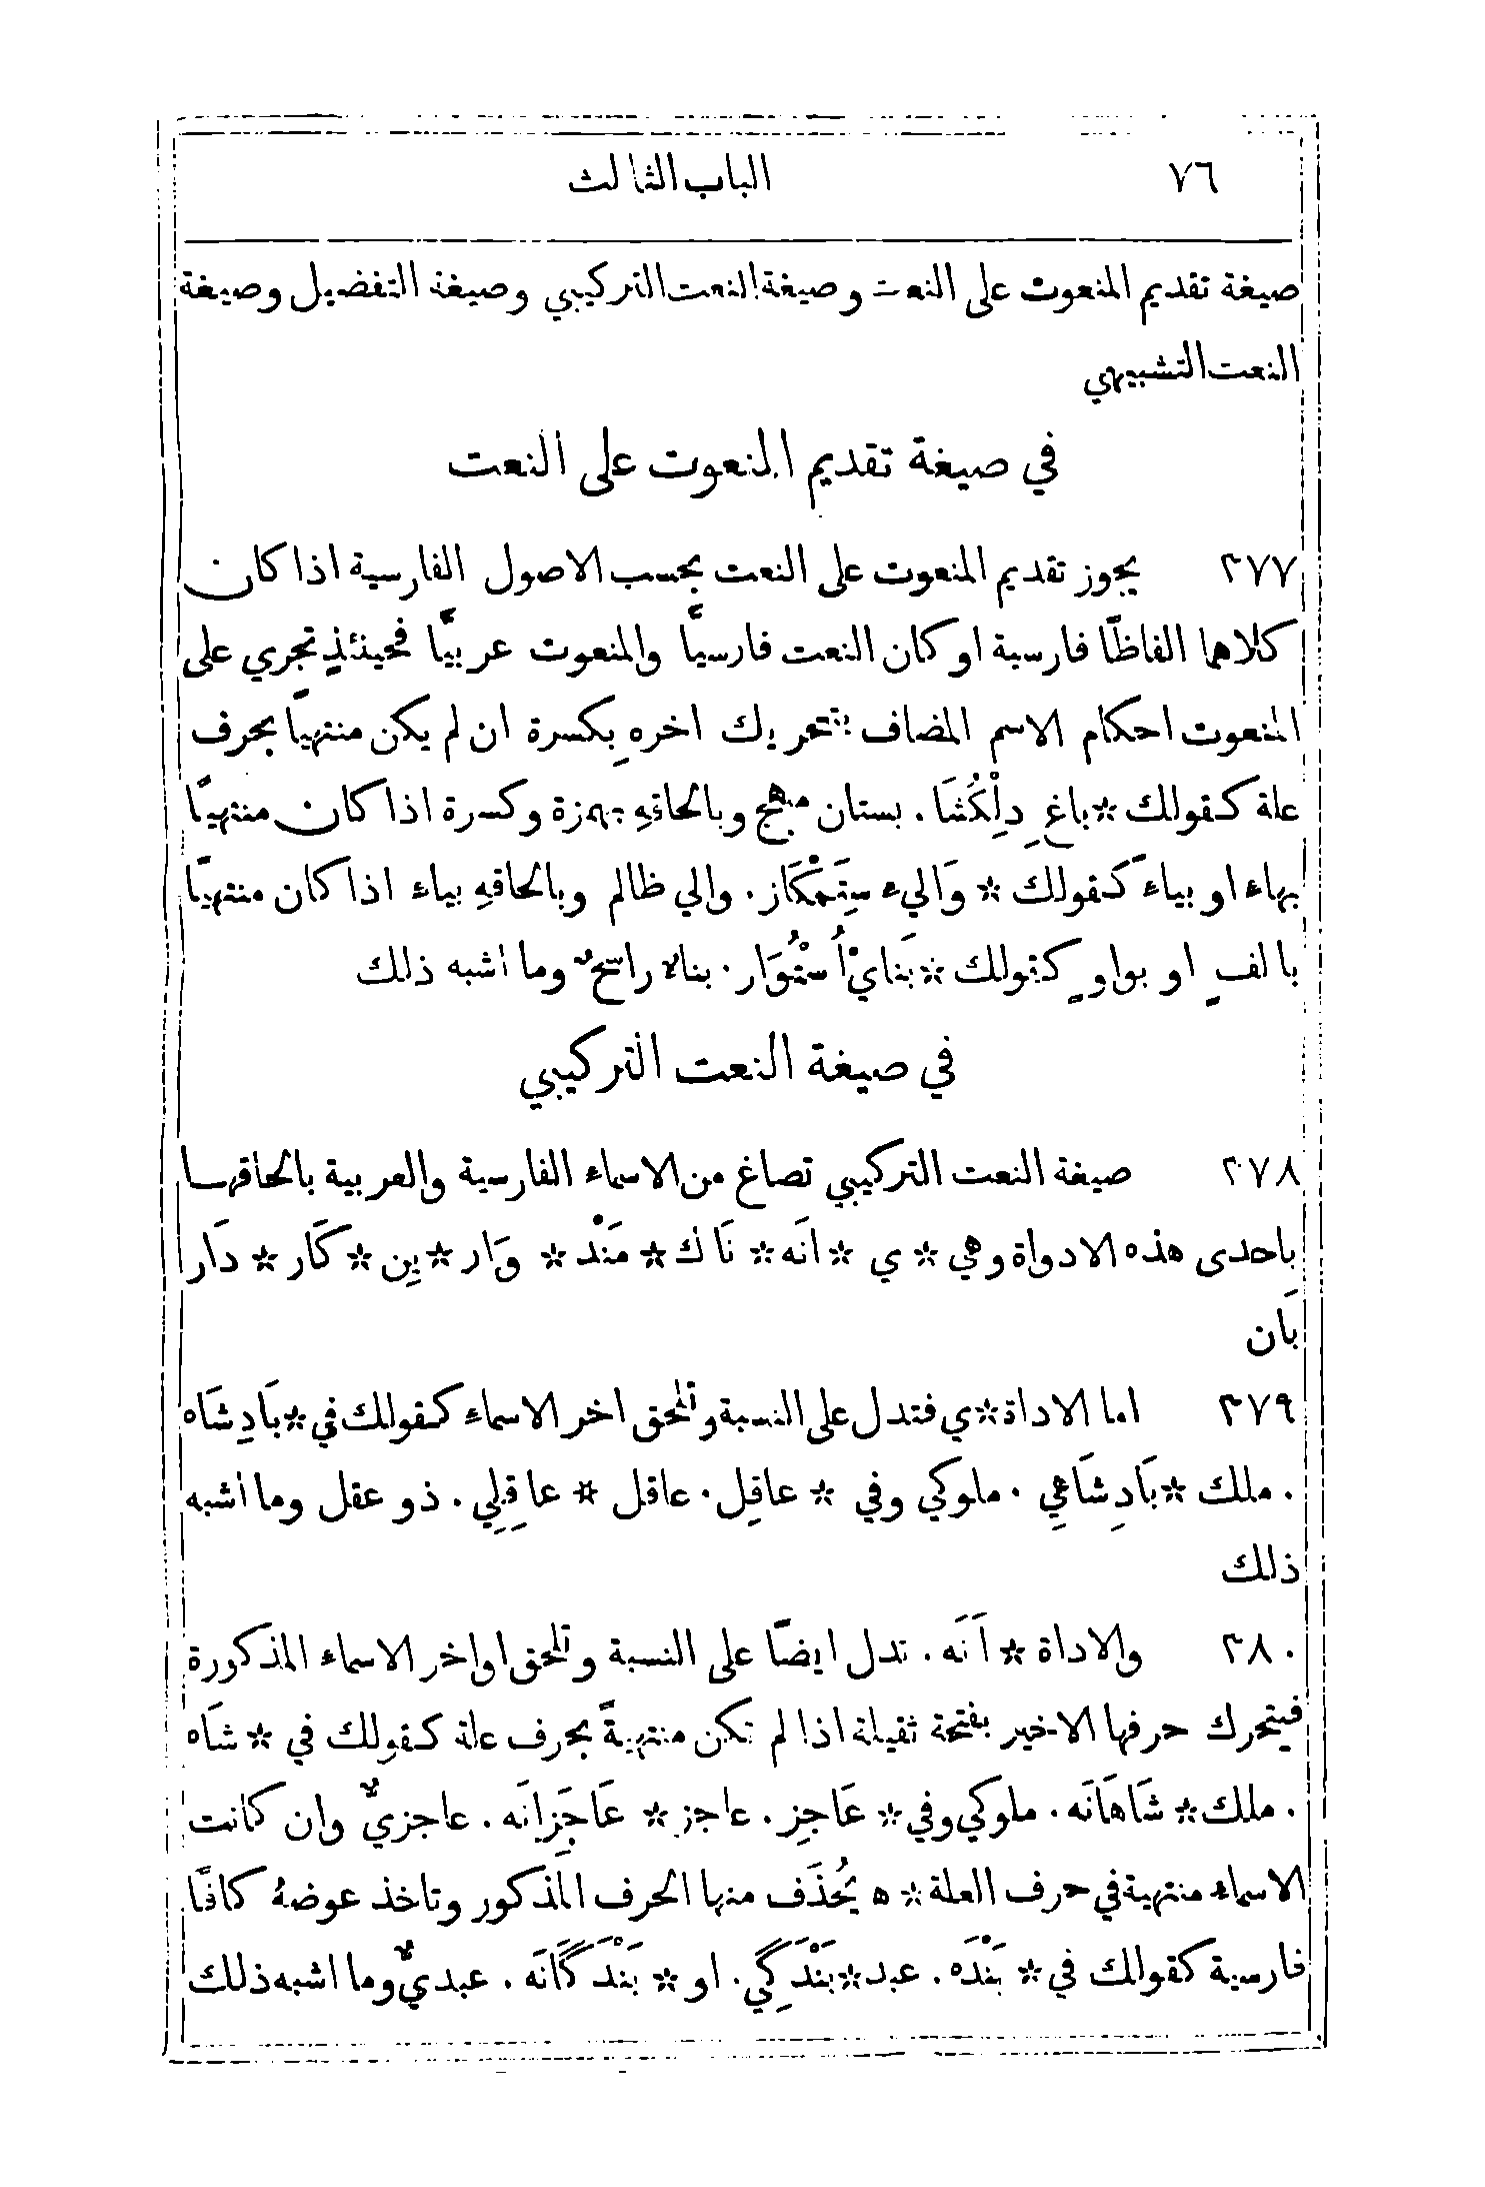 ٧٦ الباب الثالث
صيغة تقديم المنعوت على النعت وصيغة النعت التركيبي وصيغة التفضيل وصيغة
النعت التشبيهي
في صيغة تقديم المنعوت على النعت
٢٧٧ يجوز تقديم المنعوت على النعت بحسب الاصول الفارسية اذا كان
كلاهما الفاظًا فارسية او كان النعت فارسيًّا والمنعوت عربيًّا فحينئذٍ تجري على
المنعوت احكام الاسم المضاف بتحريك اخرهِ بكسرة ان لم يكن منتهيًا بحرف
علة كقولك * باغِ دِلْكُشَا . بستان مبهج وبالحاقهِ بهمزة وكسرة اذا كان منتهيًا
بهاء او بياء كقولك * وَاليء سِتَمْكَاز . والي ظالم وبالحاقهِ بياء اذا كان منتهيًا
بالفٍ او بواوٍ كقولك * بَنايْ اُسْتُوَار . بناء راسخٌ وما اشبه ذلك
في صيغة النعت التركيبي
٢٧٨ صيغة النعت التركيبي تصاغ من الاسماء الفارسية والعربية بالحاقها
باحدى هذه الادواة وهي * ي * انَه * نَاك * مَنْد * وَار * يِن * كَار * دَار
بَان
٢٧٩ اما الاداة * ي فتدل على النسبة وتلحق اخر الاسماء كقولك في * بَادِشَاه
. ملك * بَادِشَاهِي . ملوكي وفي * عاقِل . عاقل * عاقِلِي . ذو عقل وما اشبه
ذلك
٢٨٠ والاداة * اَنَه . تدل ايضًا على النسبة وتلحق اواخر الاسماء المذكورة
فيتحرك حرفها الاخير بفتحة ثقيلة اذا لم تكن منتهيةً بحرف علة كقولك في * شَاه
. ملك * شَاهَانَه . ملوكي وفي * عَاجِز . عاجز * عَاجَزِانَه . عاجزيٌّ وان كانت
الاسماء منتهية في حرف العلة * ه يُحذَف منها الحرف المذكور وتاخذ عوضهُ كافًا
فارسية كقولك في * بَنْدَه . عبد * بَنْدَگِي . او * بَنْدَگَانَه . عبديٌّ وما اشبه ذلك